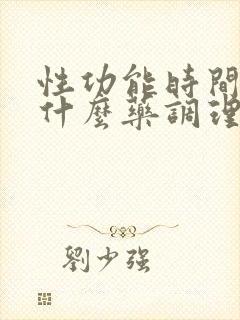 性功能時間
什麼藥調理
劉少強